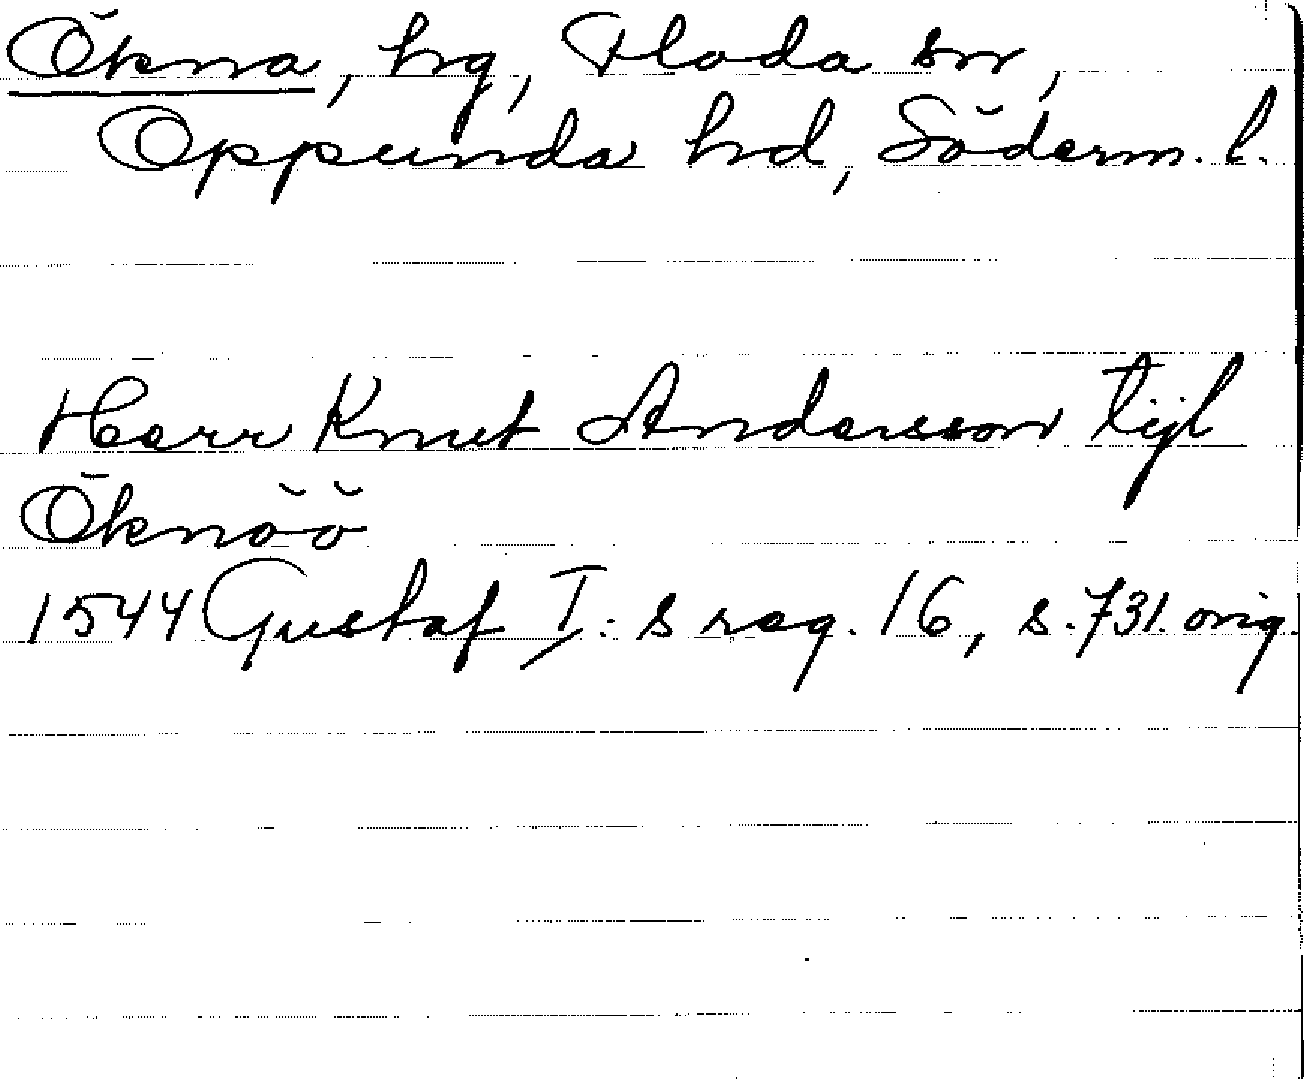 Ökna, hg, Floda sn,
Oppunda hd, Söderm. l.
Herr Knut Andersson tijl
Öknöö
1544 Gustaf I:s reg. 16, s. 731. orig.